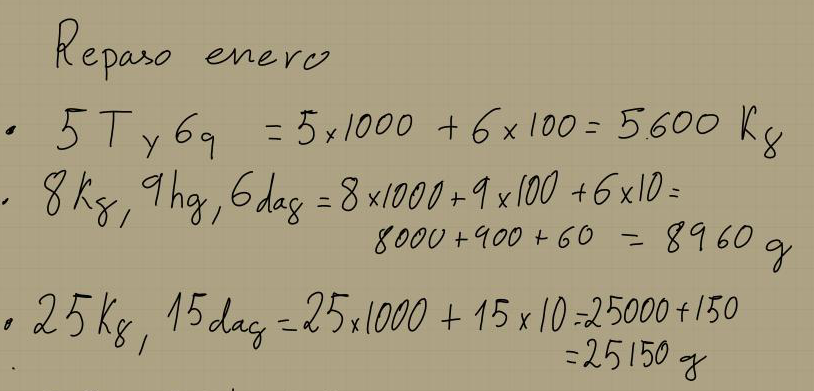 Repaso enero
• 5T y 6q = 5x1000 + 6x100 = 5.600 Kg
• 8Kg, 9hg, 6dag = 8x1000 + 9x100 + 6x10 =
8000 + 900 + 60 = 8960 g
• 25Kg, 15dag = 25x1000 + 15x10 = 25000 + 150
= 25150 g